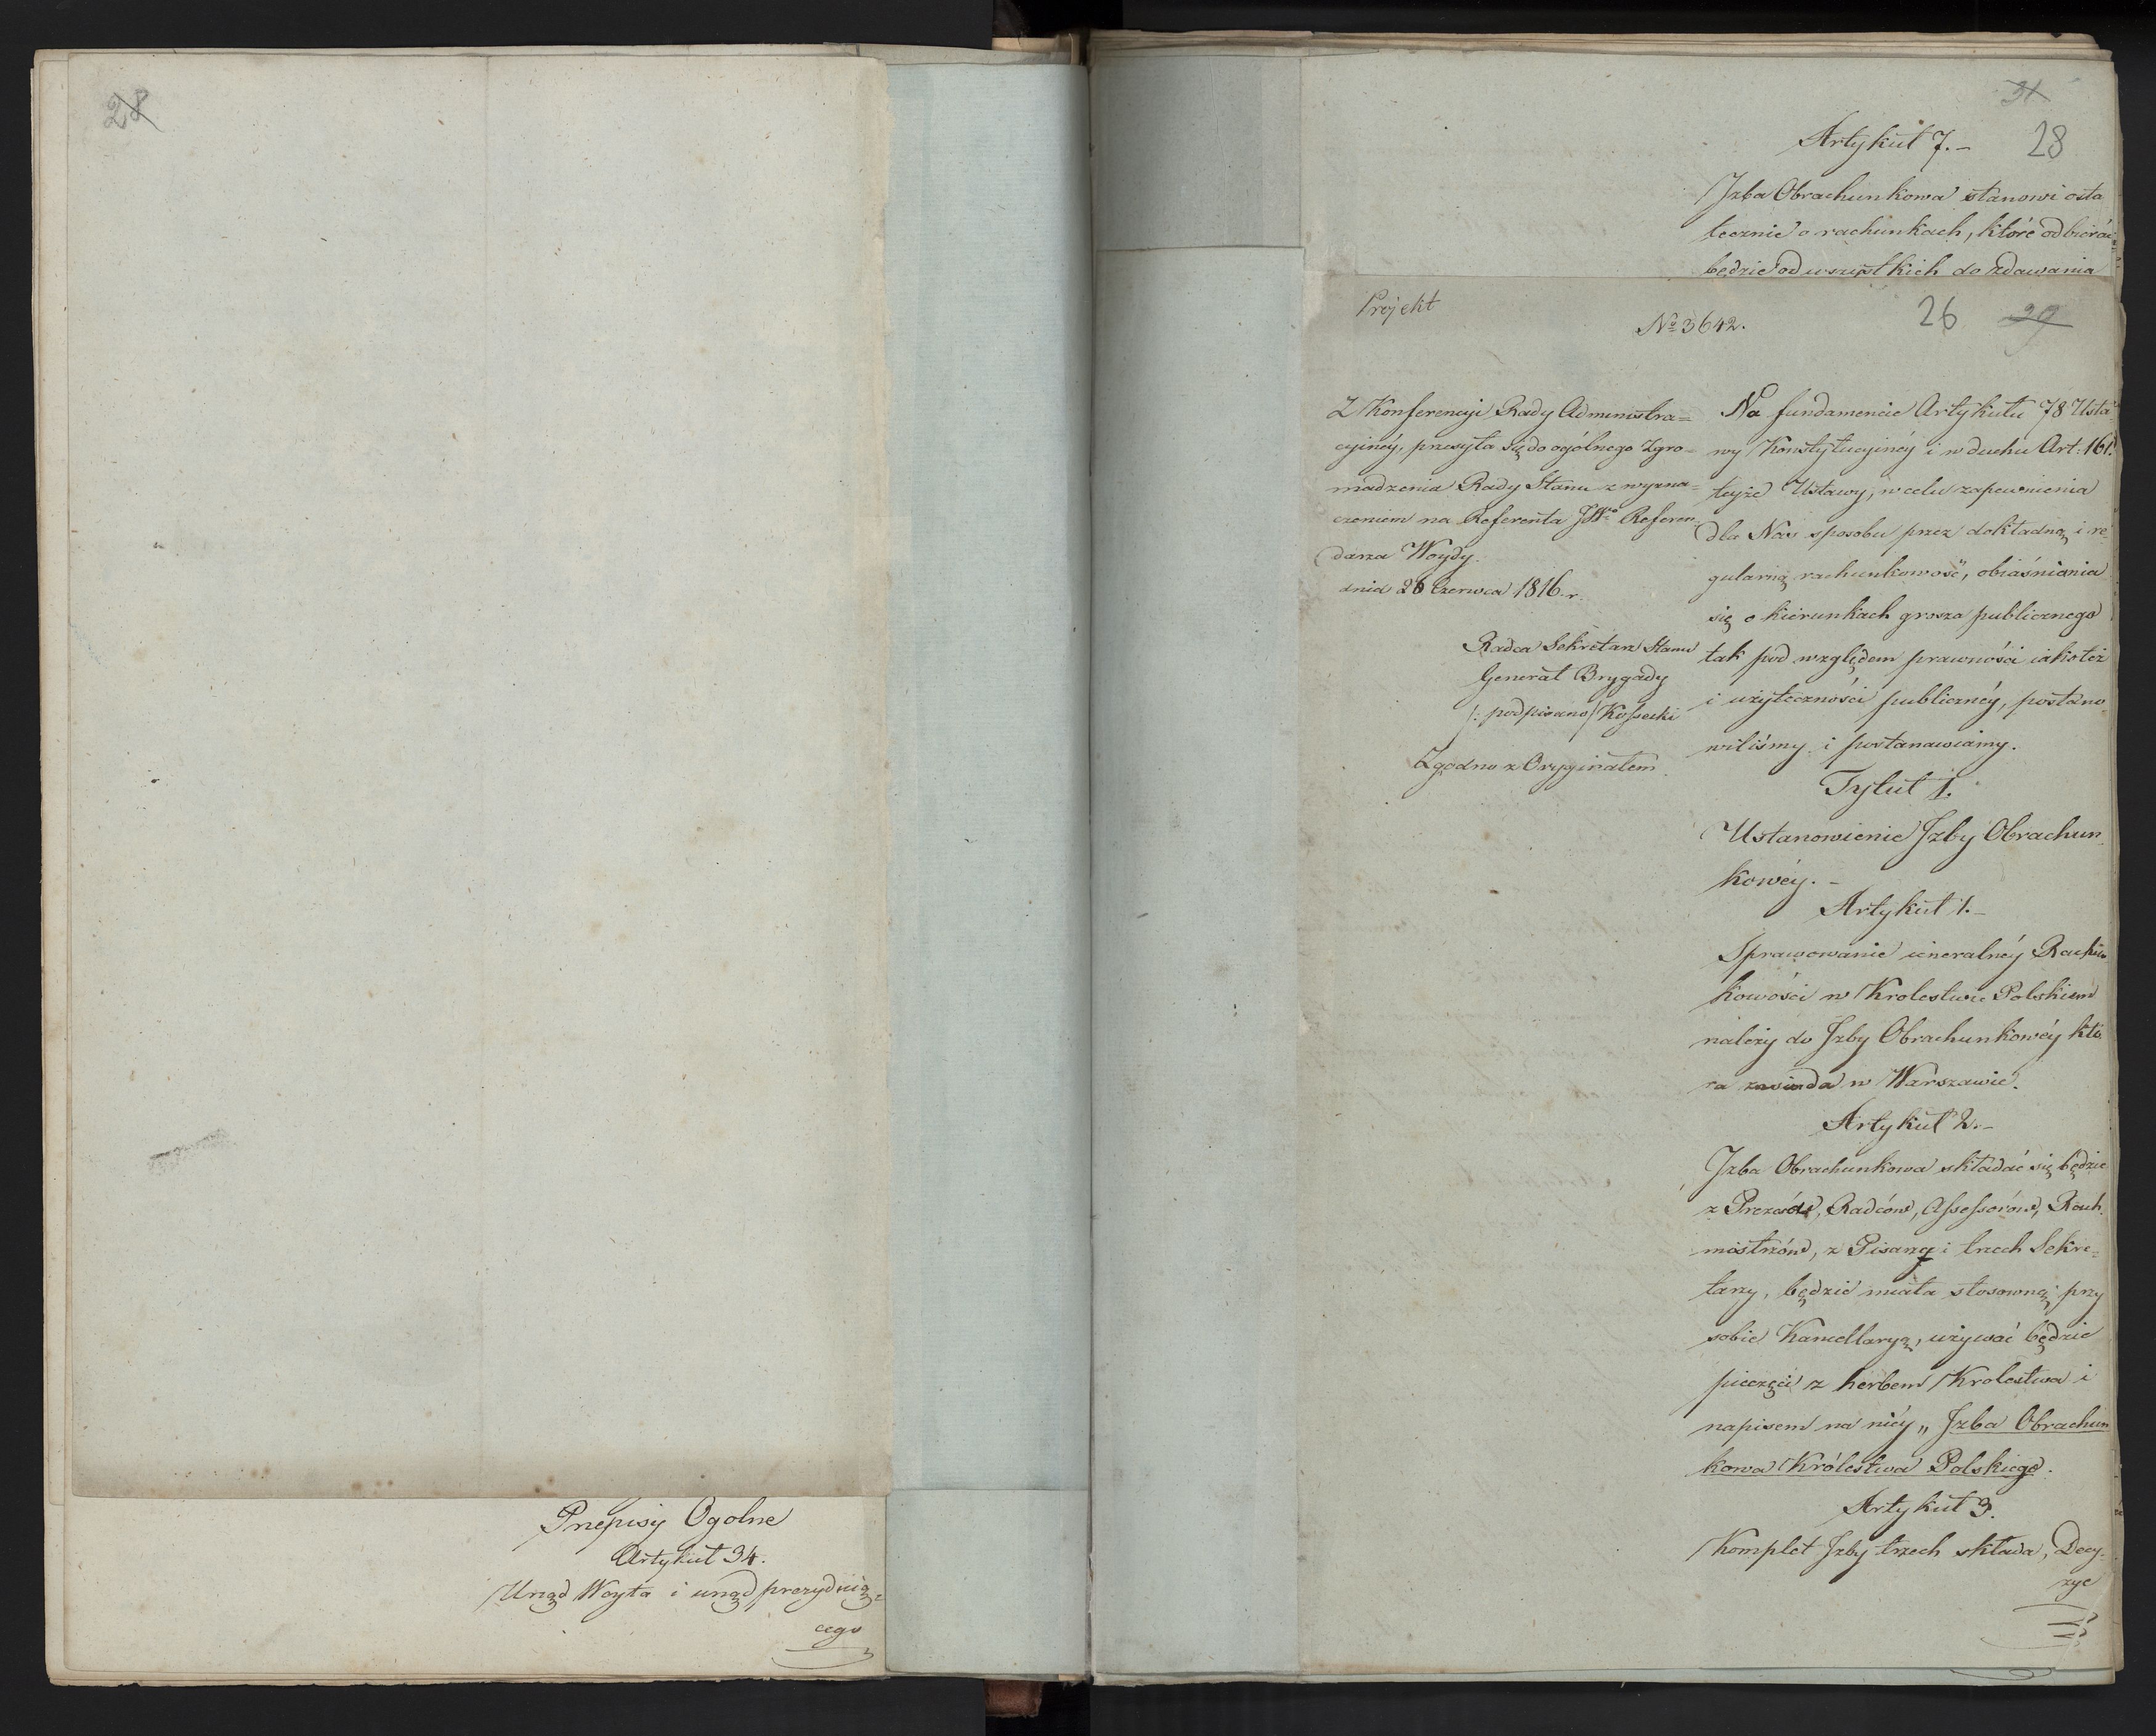 28
Przepisy Ogolne
Artykuł 34.
Urząd Woyta i urząd prezyduią=
cego
31
28
Artykuł 7.-
Jzba Obrachunkowa stanowi osta
tecznie o rachunkach, które odbierać
będzie od wszystkich do zdawania
Projekt
No 3642.
26 29
Z Konferencyi Rady Administra=
cyinéy, przesyła się do ogólnego Zgro=
madzenia Rady Stanu z wyzna=
czeniem na Referenta JWo Referen
darza Woydy.
dnia 26 Czerwca 1816 r.
Radca Sekretarz Stanu
Generał Brygady
/: podpisano/ Kossecki
Zgodno z Oryginałem
Na fundamencie Artykułu 78 Usta
wy Konstytucyinéy i w duchu Art: 161.
teyże Ustawy, w celu zapewnienia
dla Nas sposobu przez dokładną i re
gularną rachunkowość, obiaśniania
się o kierunkach grosza publicznego
tak pod względem prawności iako też
i użyteczności publicznéy, postano
wiliśmy i postanawiamy.
Tytuł 1.
Ustanowienie Jzby Obrachun
kowéy.-
Artykuł 1.-
Sprawowanie ieneralnéy Rachun
kowości w Krolestwie Polskiem
należy do Jzby Obrachunkowéy któ
ra zasiada w Warszawie.
Artykuł 2.-
Jzba Obrachunkowa składać się będzie
z Prezesów, Radców, Assessorów, Rach.
mistrzów, z Pisarza i trzech Sekre=
tarzy, będzie miała stosowną przy
sobie Kancellaryą, używać będzie
pieczęci z herbem Krolestwa i
napisem na niéy „Jzba Obrachun
kowa Królestwa Polskiego.
Artykuł 3.
Komplet Jzby trzech składa, Decy-
zye